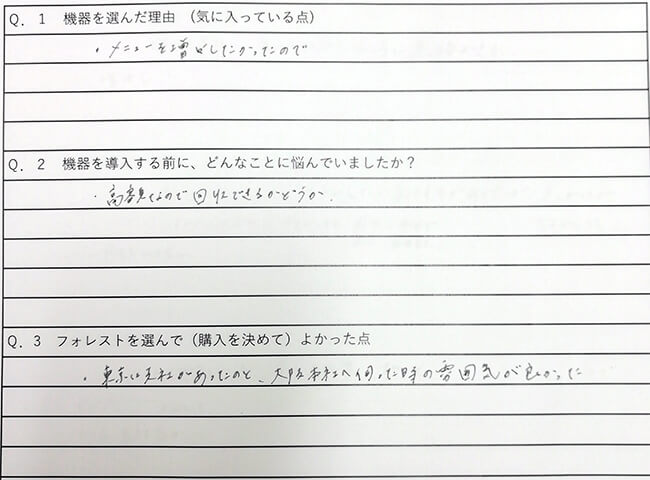 Q. 1 機器を選んだ理由 (気に入っている点)
・メニューを増やしたかったので
Q. 2 機器を導入する前に、どんなことに悩んでいましたか？
・高額なので回収できるかどうか.
Q. 3 フォレストを選んで（購入を決めて）よかった点
・東京に支社があったのと、大阪本社へ伺った時の雰囲気が良かった